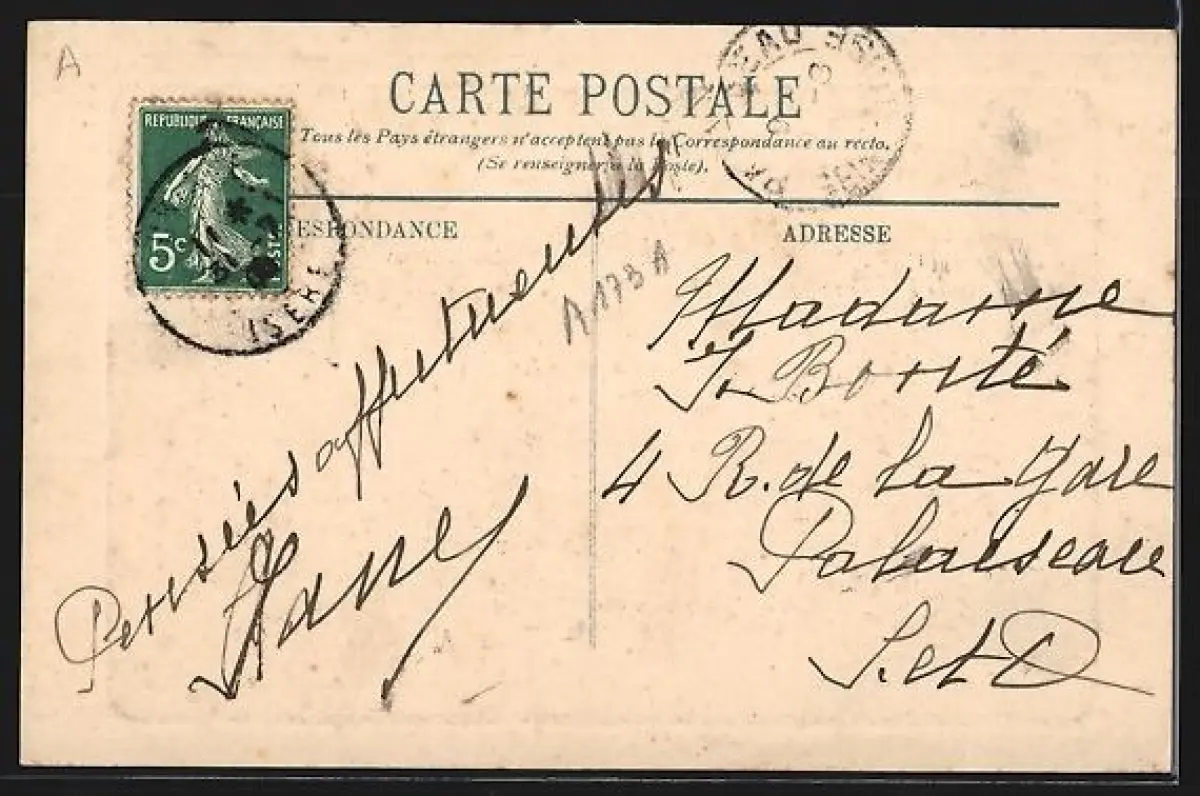 A
CARTE POSTALE
Tous les Pays étrangers n'acceptent pas la Correspondance au recto.
(Se renseigner à la Poste).
REPUBLIQUE FRANÇAISE
5c
ISERE
ESPONDANCE
ADRESSE
A 173 A
Pensées affectueuses
Madame
J. Bonté
4 R. de la Gare
Palaiseau
S. et O